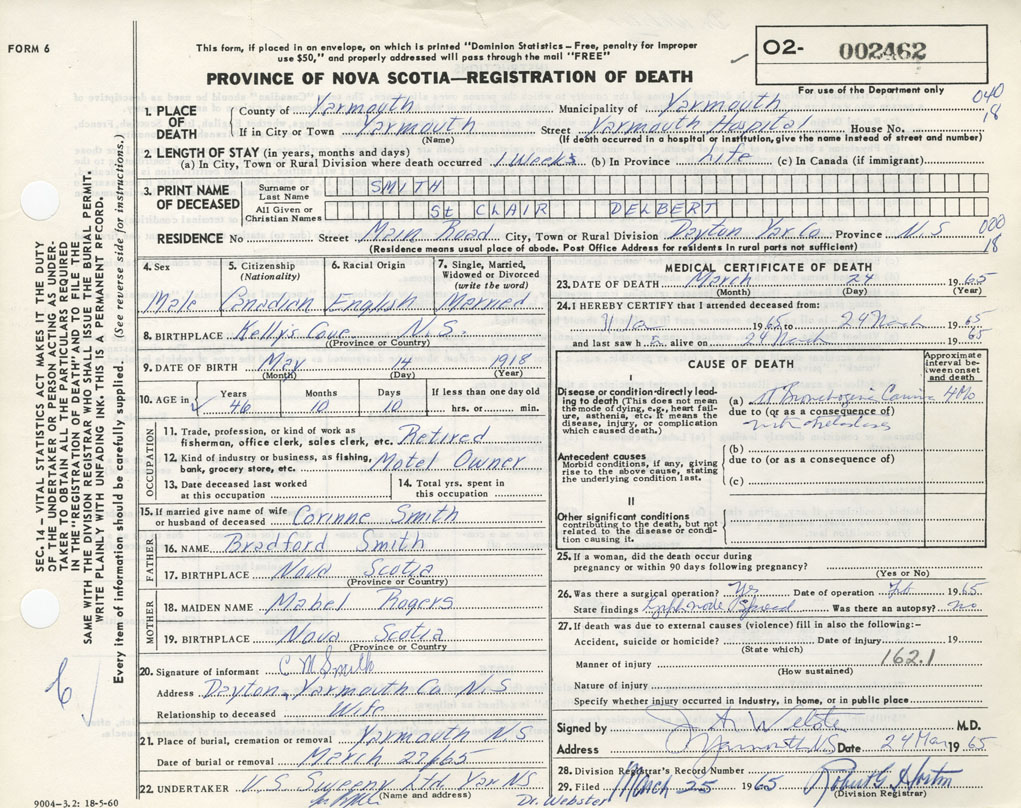 FORM 6
This form, if placed in an envelope, on which is printed "Dominion Statistics – Free, penalty for improper
use $50," and properly addressed will pass through the mail "FREE"
O2- 002462
PROVINCE OF NOVA SCOTIA—REGISTRATION OF DEATH
For use of the Department only
040
18
1. PLACE OF DEATH
County of Yarmouth Municipality of Yarmouth
If in City or Town Yarmouth Street Yarmouth Hospital House No.
(Name) (If death occurred in a hospital or institution, give the name instead of street and number)
2. LENGTH OF STAY (in years, months and days)
(a) In City, Town or Rural Division where death occurred 1 Weeks (b) In Province Life (c) In Canada (if immigrant)
3. PRINT NAME OF DECEASED
Surname or Last Name SMITH
All Given or Christian Names St CLAIR DELBERT
RESIDENCE No Street Main Road City, Town or Rural Division Dayton Yar Co Province N.S
(Residence means usual place of abode. Post Office Address for residents in rural parts not sufficient)
000
18
4. Sex Male
5. Citizenship (Nationality) Canadian
6. Racial Origin English
7. Single, Married, Widowed or Divorced (write the word) Married
8. BIRTHPLACE Kelly's Cove N.S.
(Province or Country)
9. DATE OF BIRTH May 14 1918
(Month) (Day) (Year)
10. AGE in Years 46 Months 10 Days 10 If less than one day old hrs. or min.
OCCUPATION
11. Trade, profession, or kind of work as fisherman, office clerk, sales clerk, etc. Retired
12. Kind of industry or business, as fishing, bank, grocery store, etc. Motel Owner
13. Date deceased last worked at this occupation
14. Total yrs. spent in this occupation
15. If married give name of wife or husband of deceased Corinne Smith
FATHER
16. NAME Bradford Smith
17. BIRTHPLACE Nova Scotia
(Province or Country)
MOTHER
18. MAIDEN NAME Mabel Rogers
19. BIRTHPLACE Nova Scotia
(Province or Country)
20. Signature of informant C M Smith
Address Dayton, Yarmouth Co N.S
Relationship to deceased Wife
21. Place of burial, cremation or removal Yarmouth NS
Date of burial or removal March 27/65
22. UNDERTAKER V.S. Sweeny Ltd. Yar NS
(Name and address)
Dr. Webster
9004-3.2: 18-5-60
MEDICAL CERTIFICATE OF DEATH
23. DATE OF DEATH March 24 1965
(Month) (Day) (Year)
24. I HEREBY CERTIFY that I attended deceased from:
1965 to 24 March 1965
and last saw h alive on 24 March 1965
CAUSE OF DEATH
Approximate interval between onset and death
I
Disease or condition directly leading to death (This does not mean the mode of dying, e.g., heart failure, asthenia, etc. It means the disease, injury, or complication which caused death.)
(a) Bronchogenic 4 Mo
due to (or as a consequence of)
with
Antecedent causes
Morbid conditions, if any, giving rise to the above cause, stating the underlying condition last.
(b)
due to (or as a consequence of)
(c)
II
Other significant conditions
contributing to the death, but not related to the disease or condition causing it.
25. If a woman, did the death occur during pregnancy or within 90 days following pregnancy?
(Yes or No)
26. Was there a surgical operation? Yes Date of operation Feb 1965
State findings Spread Was there an autopsy? no
27. If death was due to external causes (violence) fill in also the following:–
Accident, suicide or homicide? Date of injury 19
(State which)
Manner of injury 162.1
(How sustained)
Nature of injury
Specify whether injury occurred in industry, in home, or in public place
Signed by M.D.
Address Yarmouth NS Date 24 Mar 1965
28. Division Registrar's Record Number
29. Filed March 25 1965 Robert G Horton
(Division Registrar)
SEC. 14 – VITAL STATISTICS ACT MAKES IT THE DUTY
OF THE UNDERTAKER OR PERSON ACTING AS UNDER-
TAKER TO OBTAIN ALL THE PARTICULARS REQUIRED
IN THE "REGISTRATION OF DEATH" AND TO FILE THE
SAME WITH THE DIVISION REGISTRAR WHO SHALL ISSUE THE BURIAL PERMIT.
WRITE PLAINLY WITH UNFADING INK. THIS IS A PERMANENT RECORD.
Every item of information should be carefully supplied. (See reverse side for instructions.)